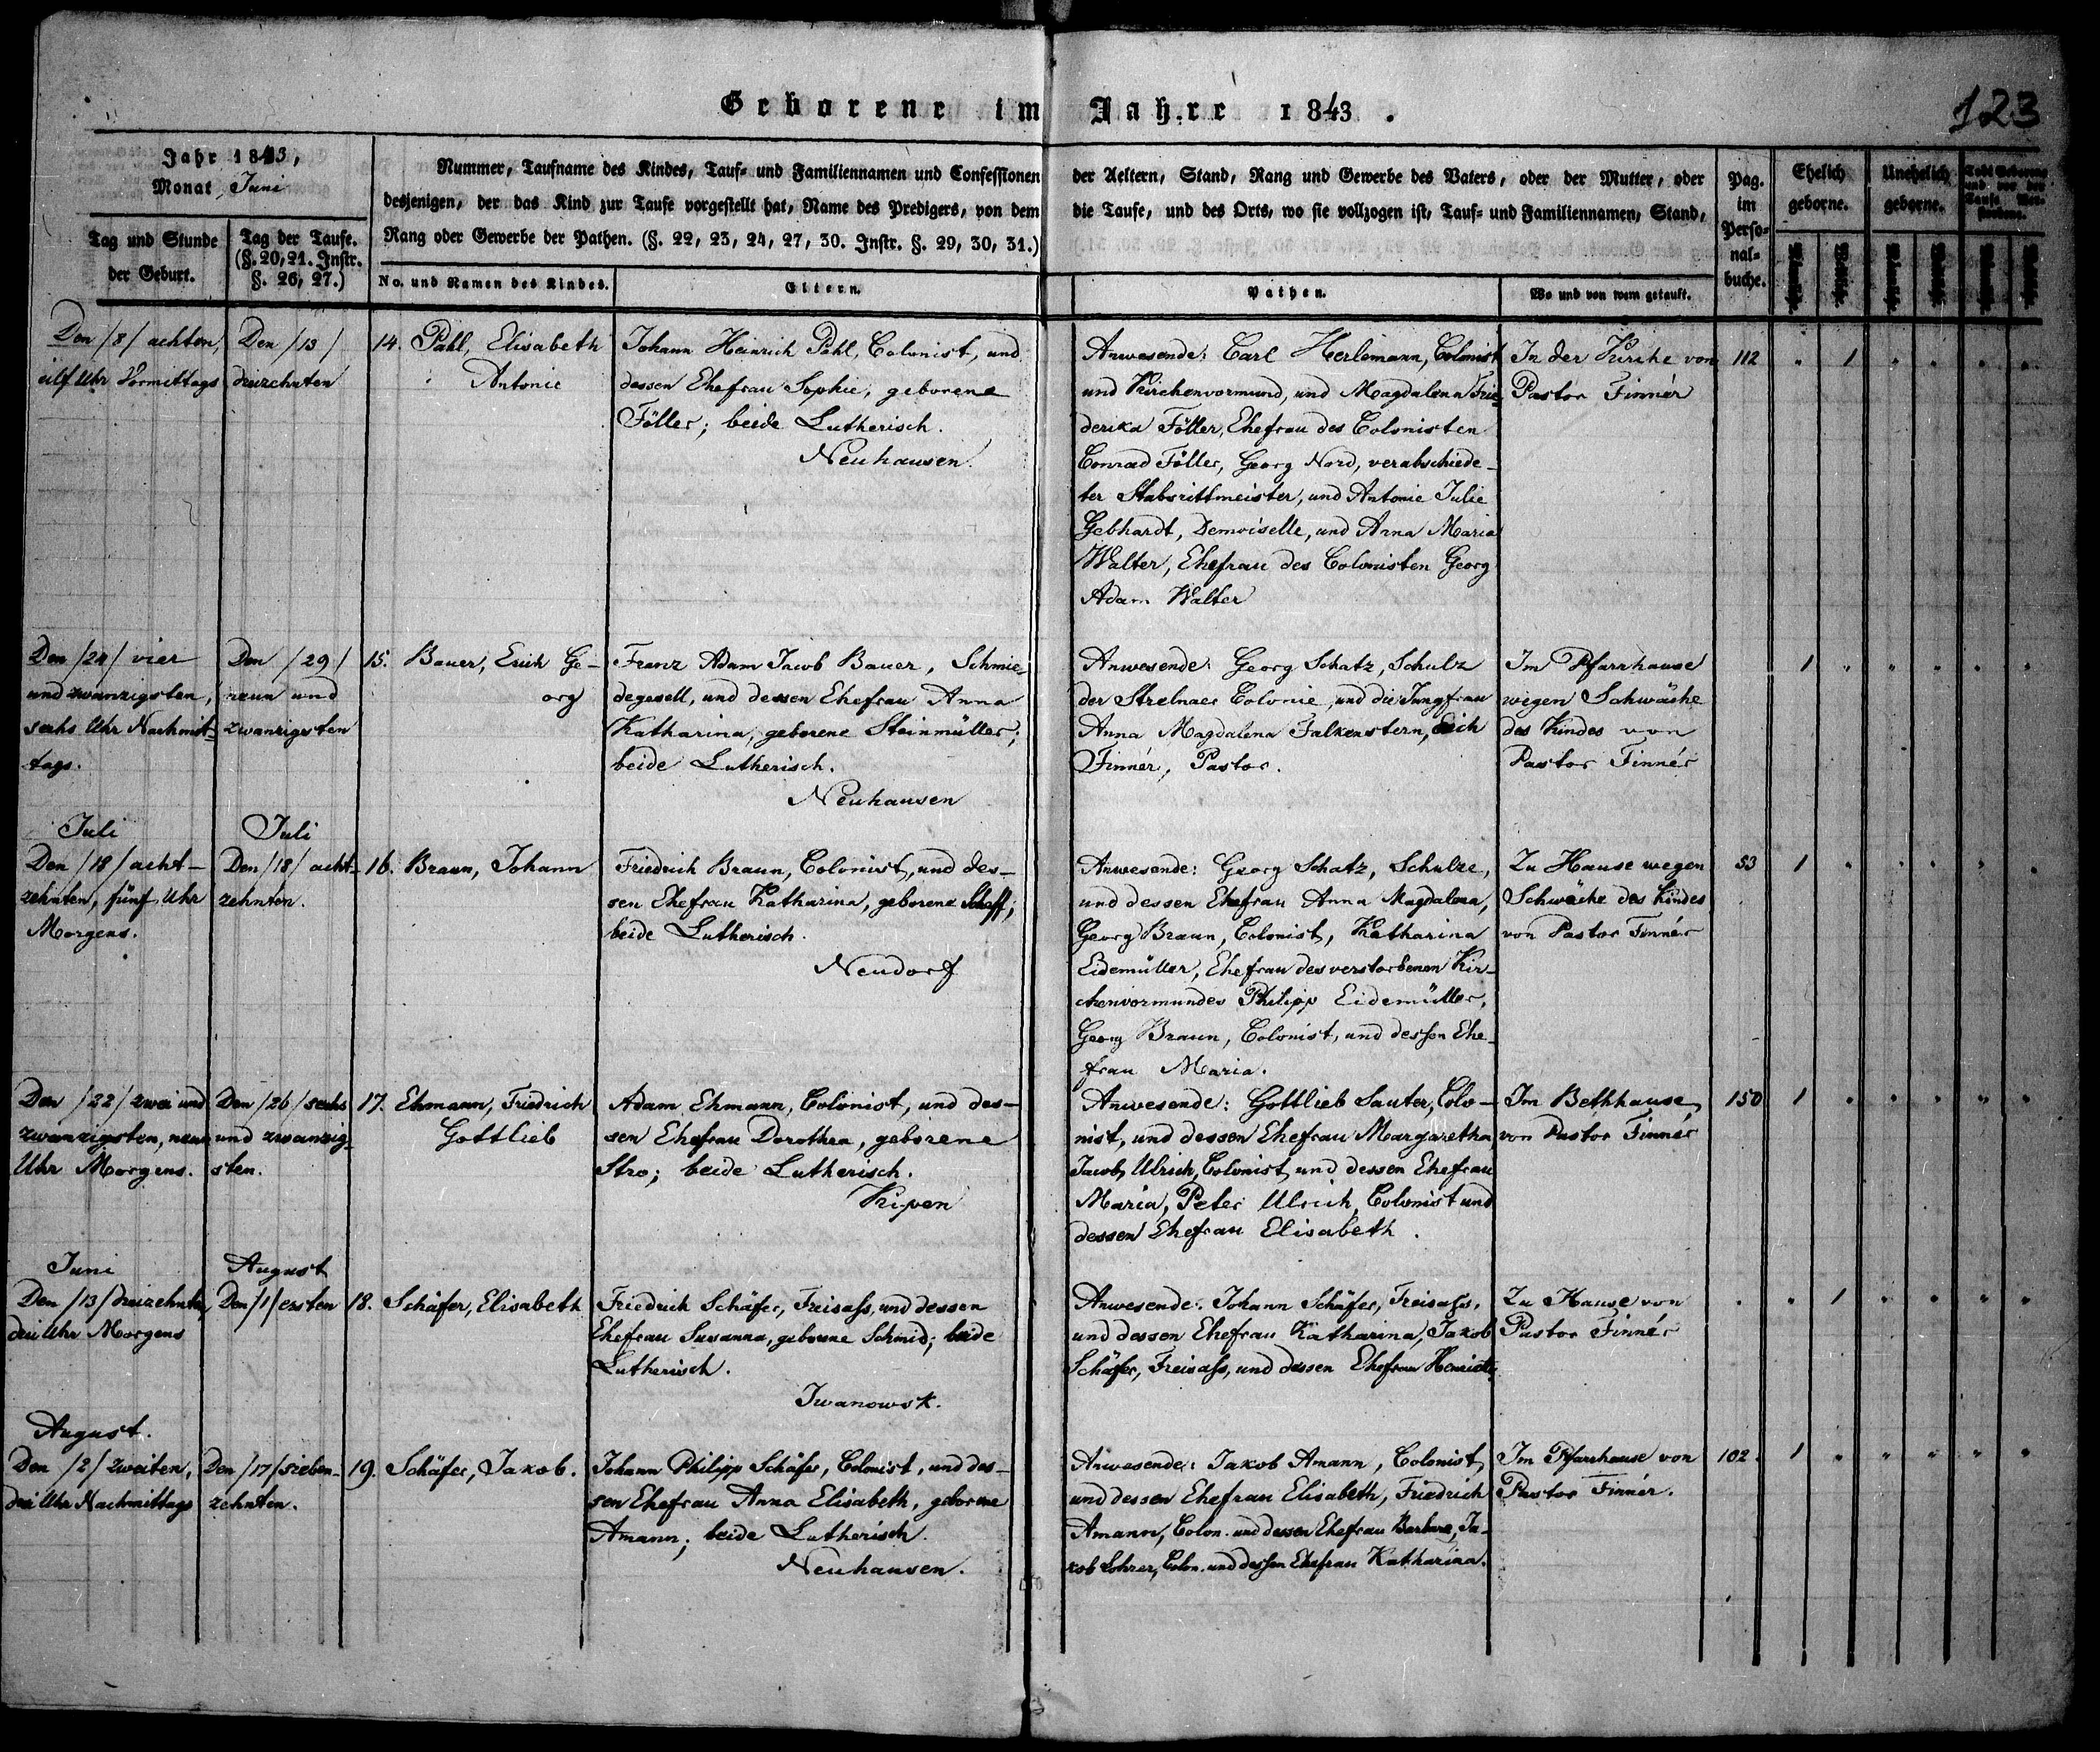 Geborene im Jahre 1843.
123
Jahr 1843,
Monat Juni
Tag und Stunde
der Geburt.
Tag der Taufe.
(§. 20, 21. Instr.
§. 26, 27.)
Nummer, Taufname des Kindes, Tauf- und Familiennamen und Confessionen der Aeltern, Stand, Rang und Gewerbe des Vaters, oder der Mutter, oder
desjenigen, der das Kind zur Taufe vorgestellt hat, Name des Predigers, von dem die Taufe, und des Orts, wo sie vollzogen ist, Tauf- und Familiennamen, Stand,
Rang oder Gewerbe der Pathen. (§. 22, 23, 24, 27, 30. Instr. §. 29, 30, 31.)
No. und Namen des Kindes.
Eltern.
Pathen.
Wo und von wem getauft.
Pag.
im
Perso-
nal-
buche.
Ehelich
geborne.
Unehelich
geborne.
Todt Geborene
und vor der
Taufe Ver-
storbene.
Männliche.
Weibliche.
Männliche.
Weibliche.
Männliche.
Weibliche.
Den /8/ achten,
eilf Uhr Vormittags
Den /13/
dreizehnten
14. Pahl, Elisabeth
Antonie
Johann Heinrich Pahl, Colonist, und
dessen Ehefrau Sophie, geborene
Föller; beide Lutherisch.
Neuhausen.
Anwesende: Carl Herlemann, Colonist
und Kirchenvormund, und Magdalena Frie-
derika Föller, Ehefrau des Colonisten
Conrad Föller, Georg Nord, verabschiede-
ter Stabsrittmeister, und Antonie Julie
Gebhardt, Demoiselle, und Anna Maria
Walter, Ehefrau des Colonisten Georg
Adam Walter
In der Kirche von
Pastor Finnér
112 " 1 " " " "
Den /24/ vier
und zwanzigsten,
sechs Uhr Nachmit-
tags.
Den /29/
neun und
zwanzigsten
15. Bauer, Erich Ge-
org
Franz Adam Jacob Bauer, Schmie-
degesell, und dessen Ehefrau Anna
Katharina, geborene Steinmüller;
beide Lutherisch.
Neuhausen
Anwesende: Georg Schatz, Schulz
der Strelnaer Colonie, und die Jungfrau
Anna Magdalena Falkenstern, Erich
Finnér, Pastor.
Im Pfarrhause
wegen Schwäche
des Kindes von
Pastor Finnér
1 " " " " "
Juli
Den /18/ acht-
zehnten, fünf Uhr
Morgens.
Juli
Den /18/ acht-
zehnten.
16. Braun, Johann
Friedrich Braun, Colonist, und des-
sen Ehefrau Katharina, geborene
beide Lutherisch.
Neudorf
Anwesende: Georg Schatz, Schulze,
und dessen Ehefrau Anna Magdalena,
Georg Braun, Colonist, Katharina
Eidemüller, Ehefrau des verstorbenen Kir-
chenvormundes Philipp Eidemüller,
Georg Braun, Colonist, und dessen Ehe-
frau Maria.
Zu Hause wegen
Schwäche des Kindes
von Pastor Finnér
53 1 " " " " "
Den /22/ zwei und
zwanzigsten, neun
Uhr Morgens.
Den /26/ sechs
und zwanzig-
sten.
17. Ehmann, Friedrich
Gottlieb
Adam Ehmann, Colonist, und des-
sen Ehefrau Dorothea, geborene
Stro; beide Lutherisch.
Kipen
Anwesende: Gottlieb Sauter, Colo-
nist, und dessen Ehefrau Margaretha,
Jacob Ulrich, Colonist, und dessen Ehefrau
Maria, Peter Ulrich, Colonist und
dessen Ehefrau Elisabeth.
Im Bethhause
von Pastor Finnér
150 1 " " " " "
Juni
Den /13/ dreizehnten,
drei Uhr Morgens
August
Den /1/ ersten
18. Schäfer, Elisabeth
Friedrich Schäfer, Freisass, und dessen
Ehefrau Susanna, geborene Schmid; beide
Lutherisch.
Iwanowsk.
Anwesende: Johann Schäfer, Freisass,
und dessen Ehefrau Katharina, Jakob
Schäfer, Freisass, und dessen Ehefrau Henriette
Zu Hause von
Pastor Finnér
" " 1 " " " "
August.
Den /2/ zweiten,
drei Uhr Nachmittags
Den /17/ sieben-
zehnten.
19. Schäfer, Jakob.
Johann Philipp Schäfer, Colonist, und des-
sen Ehefrau Anna Elisabeth, geborene
Amann; beide Lutherisch.
Neuhausen.
Anwesende: Jakob Amann, Colonist,
und dessen Ehefrau Elisabeth, Friedrich
Amann, Colon. und dessen Ehefrau Barbara, Ja-
kob Lohrer, Colon. und dessen Ehefrau Katharina.
Im Pfarrhause von
Pastor Finnér.
102. 1 " " " " "